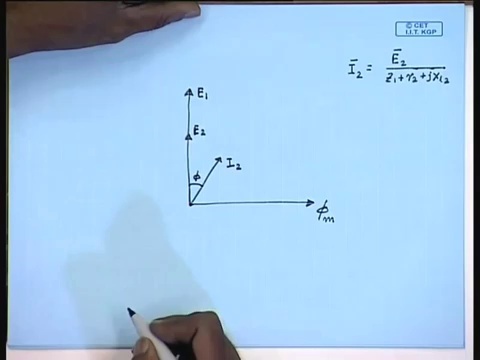 © CET
I.I.T. KGP
Ī₂ = Ē₂ / (z₁+r₂+jx_{l2})
E₁
E₂
I₂
ϕ
ϕₘ